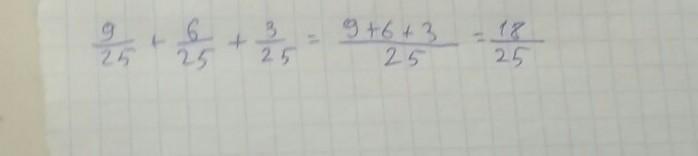 9/25 + 6/25 + 3/25 = (9+6+3)/25 = 18/25